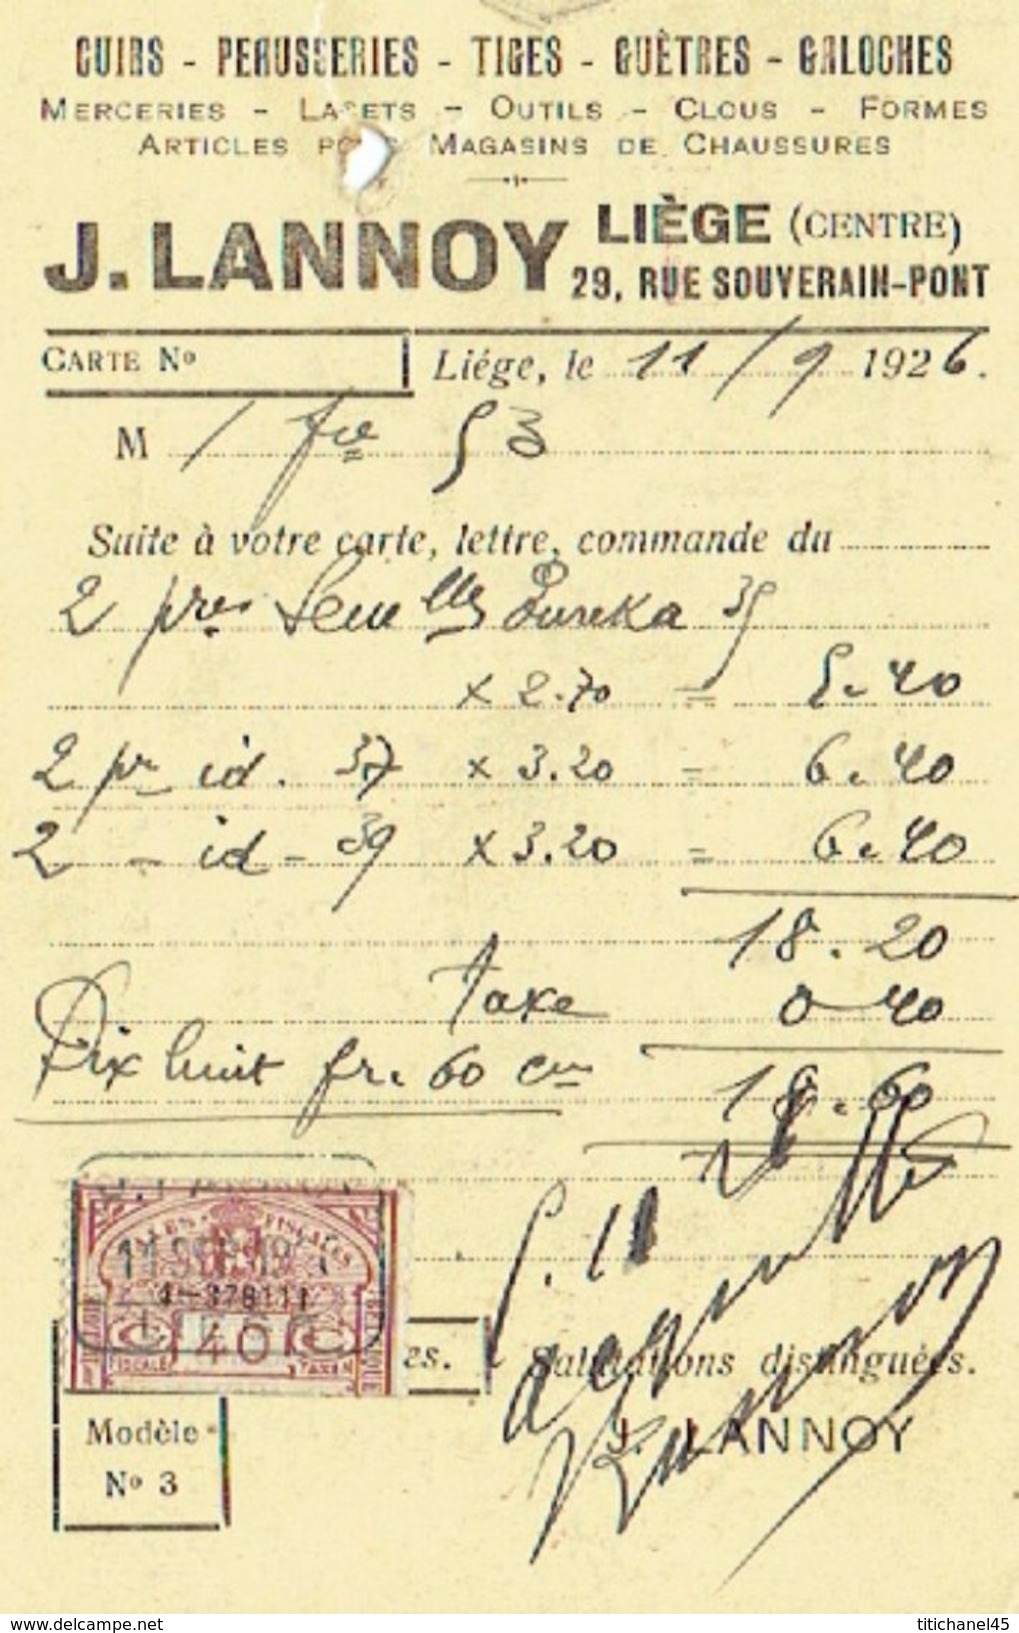 CUIRS - PERUSSERIES - TIGES - GUÈTRES - GALOCHES
MERCERIES - LACETS - OUTILS - CLOUS - FORMES
ARTICLES POUR MAGASINS DE CHAUSSURES
J. LANNOY LIÈGE (CENTRE)
29, RUE SOUVERAIN-PONT
CARTE No
Liége, le 11/9 1926.
M 1 fre 53
Suite à votre carte, lettre, commande du
2 pres Semelles Eureka 35
x 2.70 = 5.40
2 pr id. 37 x 3.20 = 6.40
2 - id - 39 x 3.20 = 6.40
18.20
taxe 0 40
Dix huit fr. 60 cm 18.60
FISCALES
11 SEP 19
4-378111
40
FISCALE TAXE
es. Salutations distinguées.
J. LANNOY
Modèle
No 3
delcampe.net
titichanel45